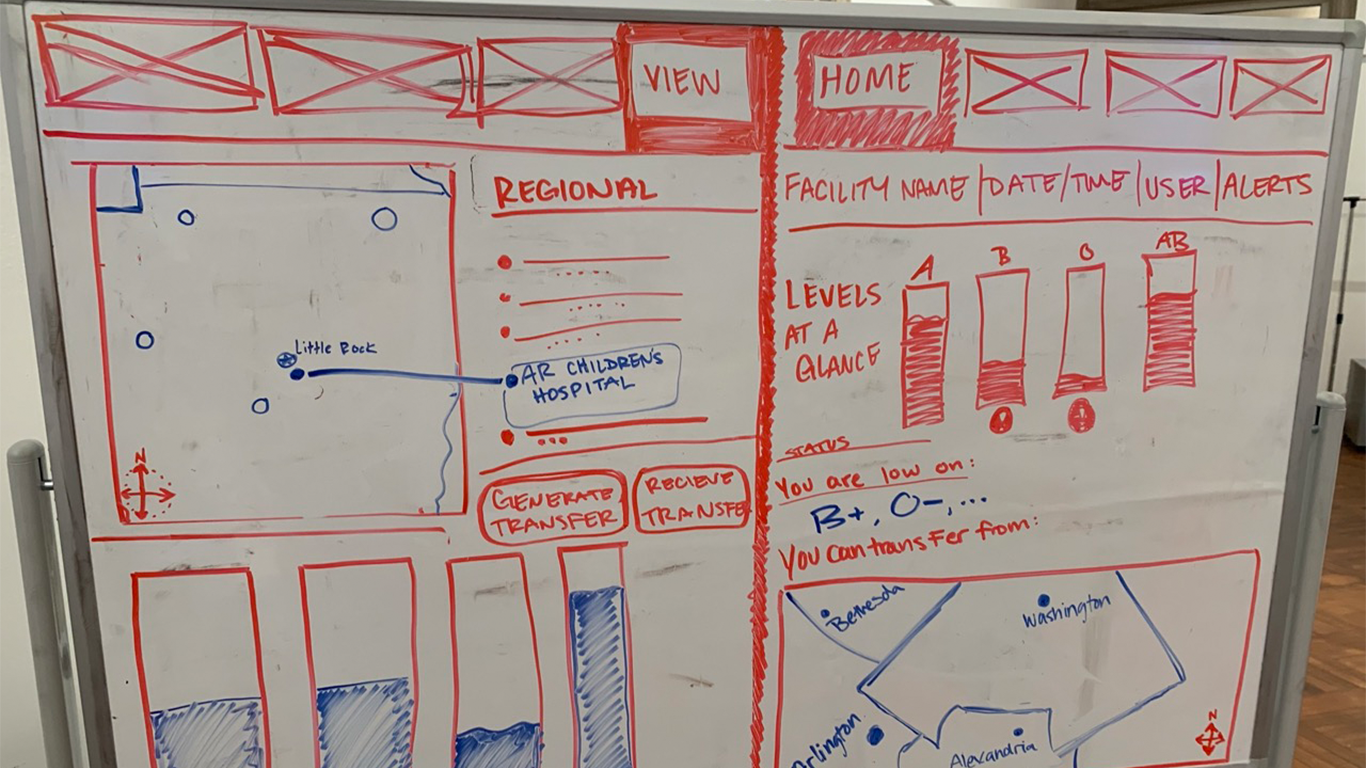 VIEW
REGIONAL
Little Rock
AR CHILDREN'S
HOSPITAL
N
GENERATE
TRANSFER
RECIEVE
TRANSFER
HOME
FACILITY NAME | DATE/TIME | USER | ALERTS
LEVELS
AT A
GLANCE
A B O AB
! !
STATUS
You are low on:
B+, O-, ...
You can transfer from:
Bethesda
Washington
Arlington
Alexandria
N